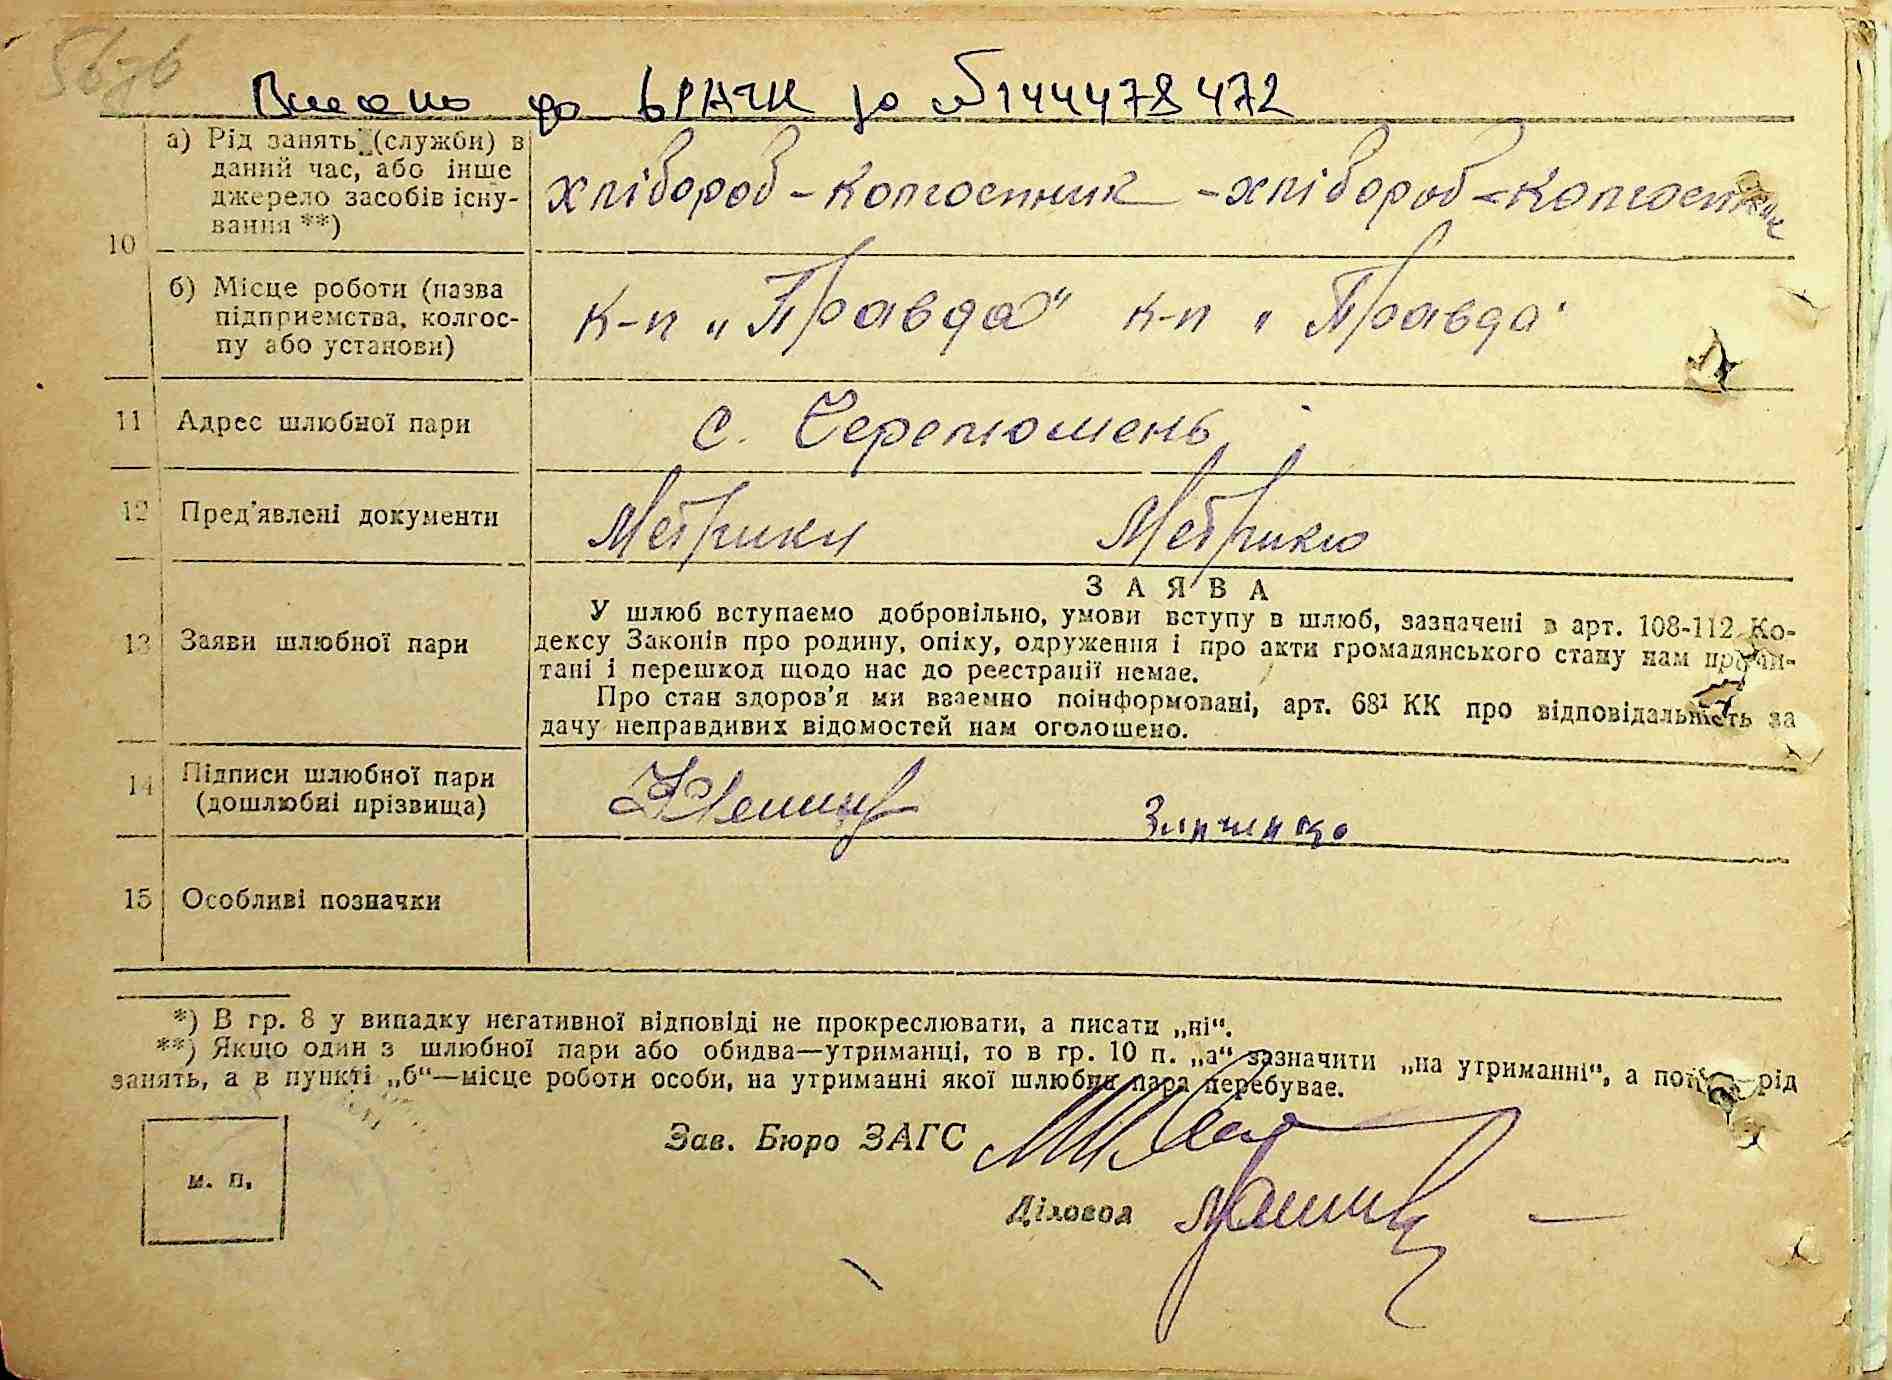 Внесено до ДРАЦС за №144478472
а) Рід занять (служби) в
даний час, або інше
джерело засобів існу-
вання **)
10
хлібороб - колгоспник - хлібороб - колгоспник
б) Місце роботи (назва
підприємства, колгос-
пу або установи)
к-п „Правда“ к-п „Правда“
11 Адрес шлюбної пари
с.
12 Пред'явлені документи
Метрики Метрики
13 Заяви шлюбної пари
ЗАЯВА
У шлюб вступаємо добровільно, умови вступу в шлюб, зазначені в арт. 108-112 Ко-
дексу Законів про родину, опіку, одруження і про акти громадянського стану нам прочи-
тані і перешкод щодо нас до реєстрації немає.
Про стан здоров'я ми взаємно поінформовані, арт. 68¹ КК про відповідальність за
дачу неправдивих відомостей нам оголошено.
14 Підписи шлюбної пари
(дошлюбні прізвища)
15 Особливі позначки
*) В гр. 8 у випадку негативної відповіді не прокреслювати, а писати „ні“.
**) Якщо один з шлюбної пари або обидва—утриманці, то в гр. 10 п. „а“ зазначити „на утриманні“, а потім рід
занять, а в пункті „б“—місце роботи особи, на утриманні якої шлюбна пара перебуває.
Зав. Бюро ЗАГС
м. п.
Діловод